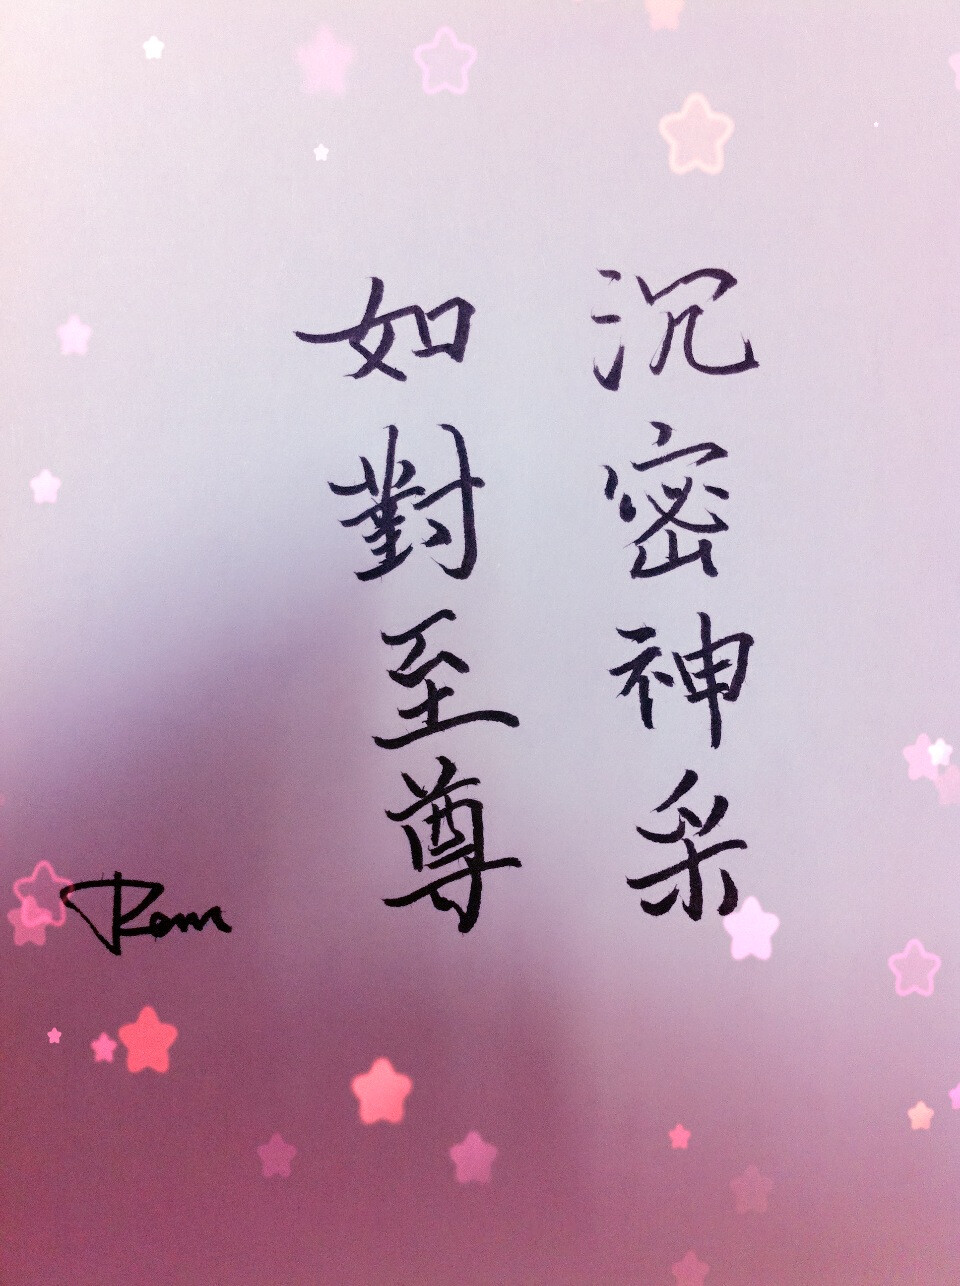 沉密神采
如對至尊